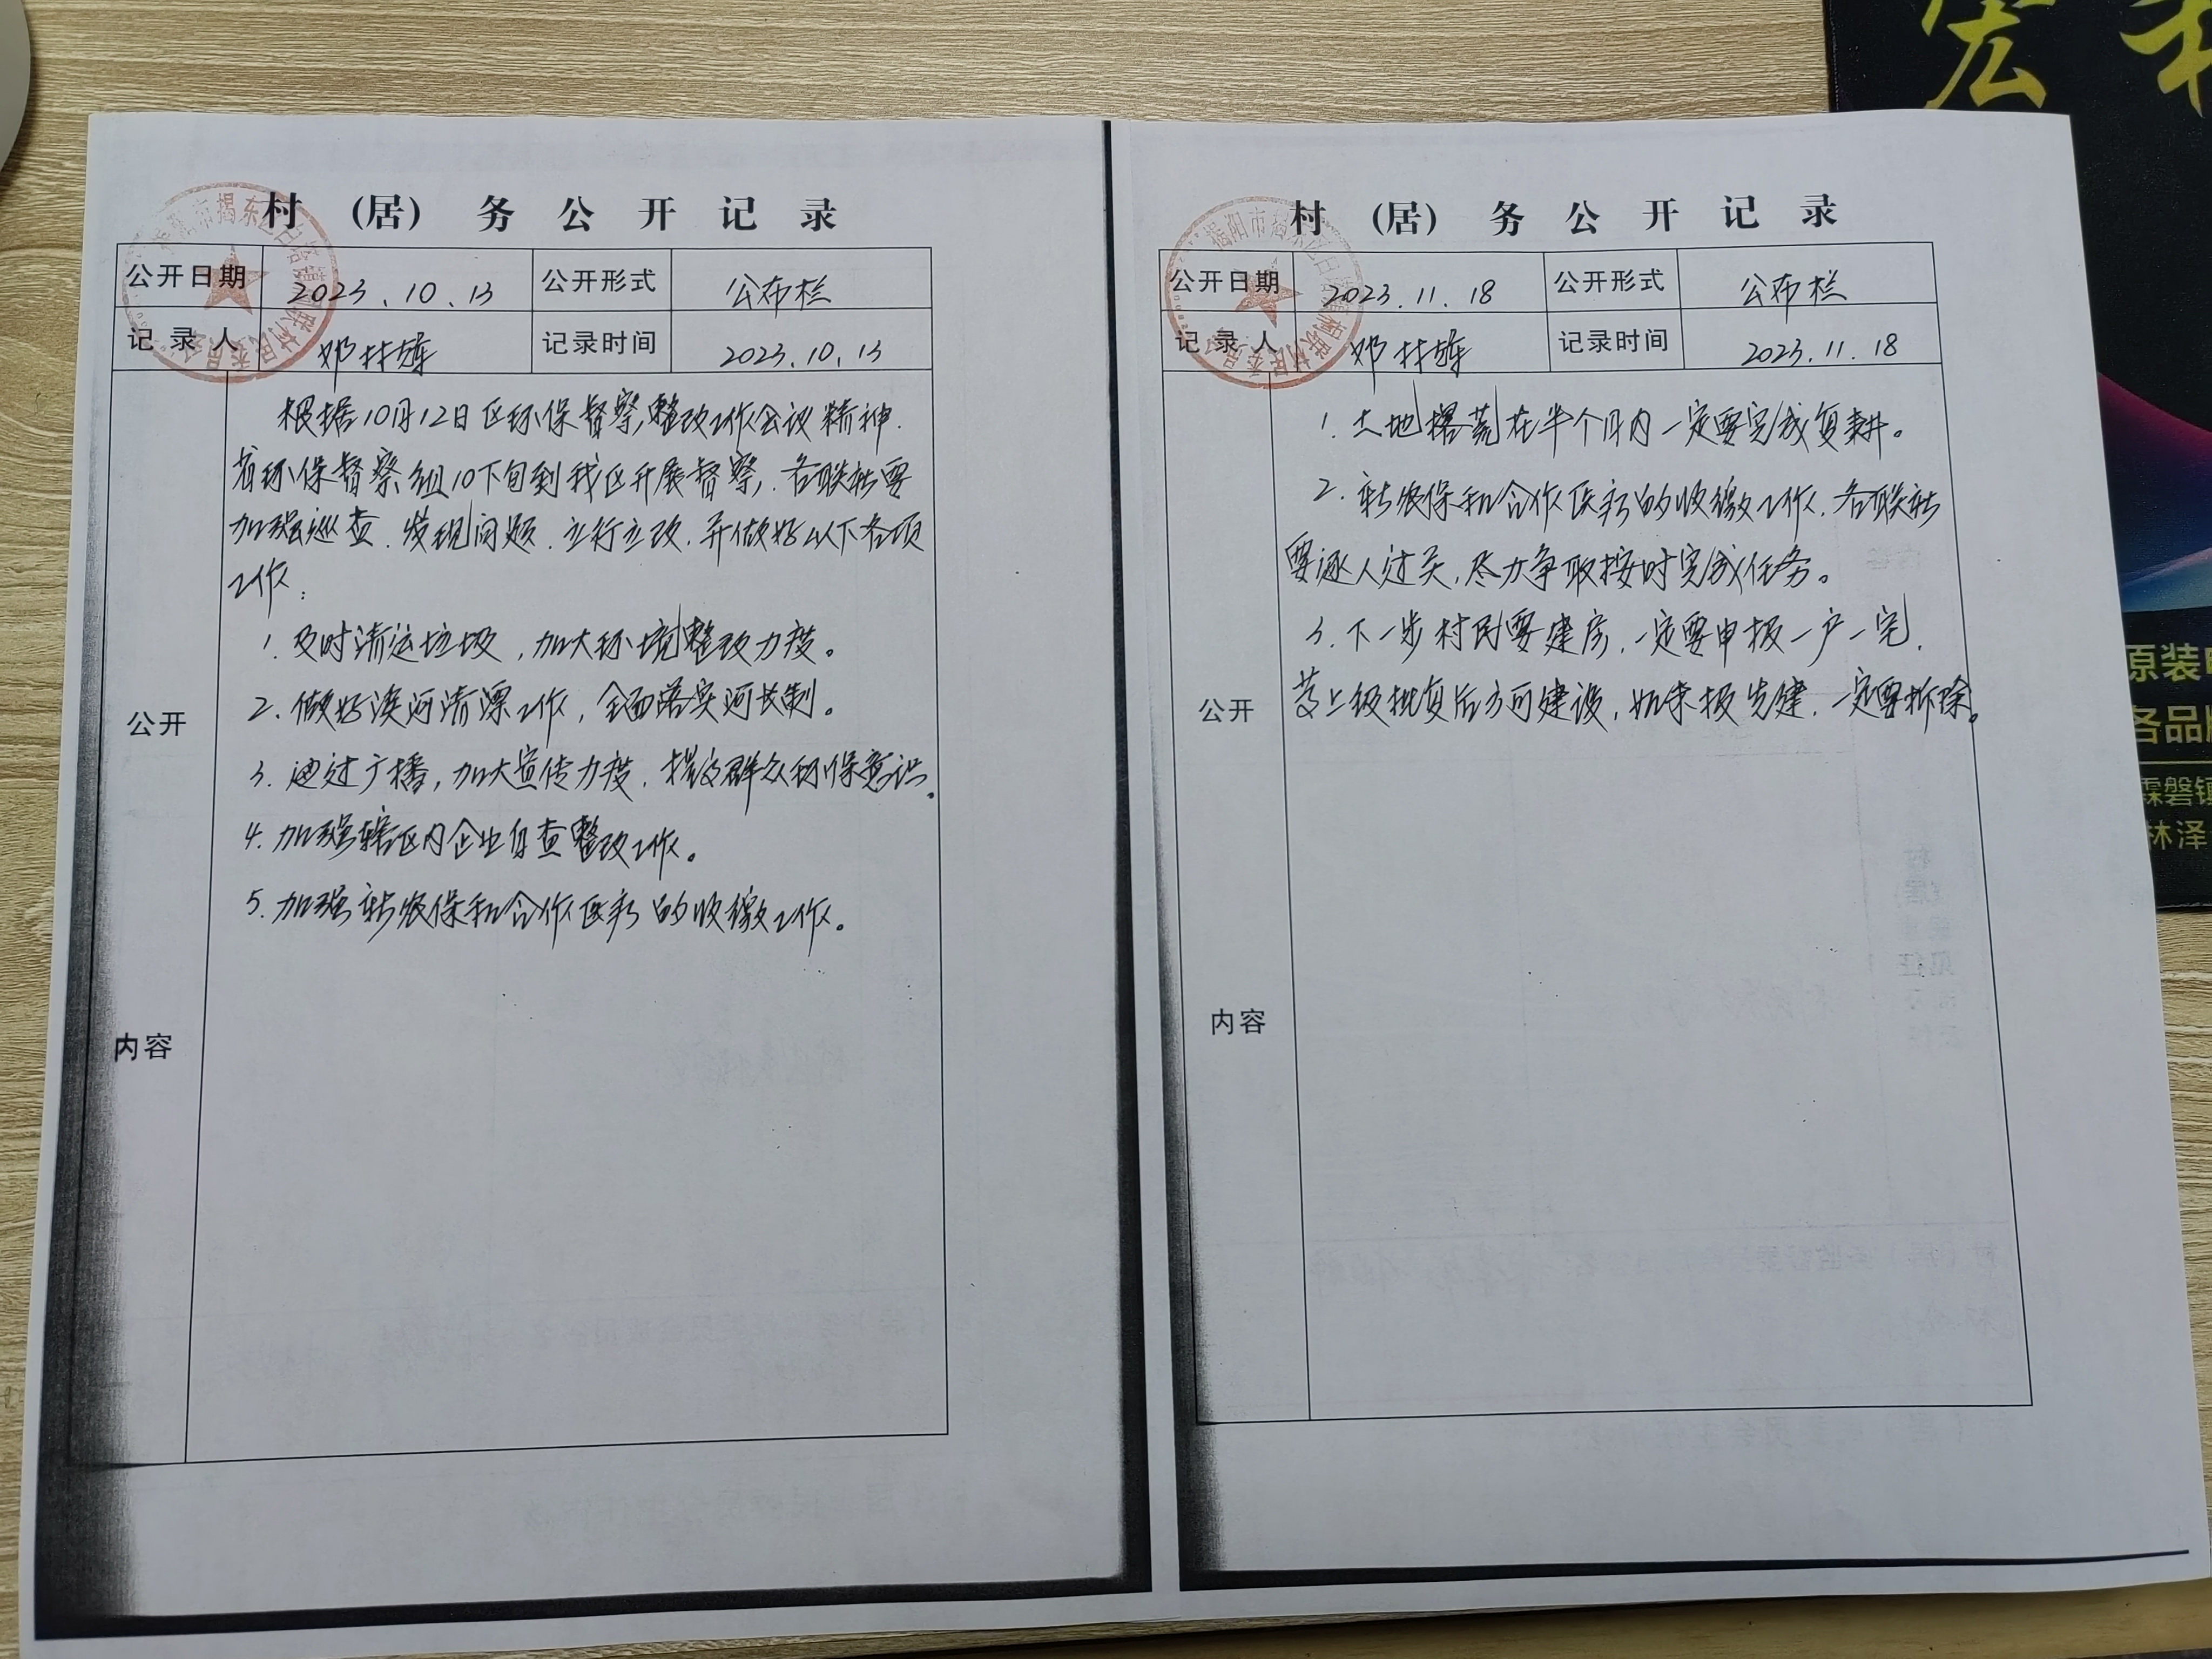 村 (居) 务 公 开 记 录
公开日期 2023.10.13 公开形式 公布栏
记录人 邓林雄 记录时间 2023.10.13
公开
内容
根据10月12日区环保督察,整改工作会议精神.
省环保督察组10下旬到我区开展督察,各联新要
加强巡查.发现问题.立行立改.并做好以下各项
工作:
1.及时清运垃圾,加大环境整改力度。
2.做好溪河清漂工作,全面落实河长制。
3.通过广播,加大宣传力度.提高群众环保意识。
4.加强辖区内企业自查整改工作。
5.加强新农保和合作医疗的收缴工作。
村 (居) 务 公 开 记 录
公开日期 2023.11.18 公开形式 公布栏
记录人 邓林雄 记录时间 2023.11.18
公开
内容
1.土地撂荒在半个月内一定要完成复耕。
2.新农保和合作医疗的收缴工作.各联新
要逐人过关,尽力争取按时完成任务。
3.下一步村民要建房,一定要申报一户一宅.
等上级批复后方可建设,如未报先建.一定要拆除。
宏
原装
各品牌
霖磐镇
林泽